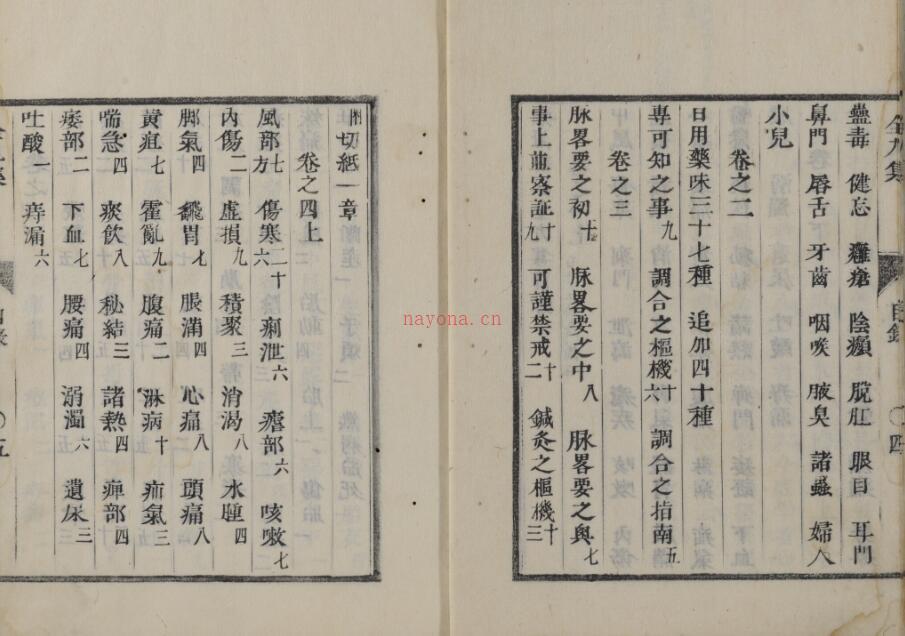 蠱毒 健忘 癰瘡 陰㿗 脫肛 眼目 耳門
鼻門 唇舌 牙齒 咽喉 腋臭 諸蟲 婦人
小兒
卷之二
日用藥味三十七種 追加四十種
專可知之事九 調合之樞機十六 調合之指南五
卷之三
脉畧要之初十 脉畧要之中八 脉畧要之奥七
事上並察証十九 可謹禁戒十二 鍼灸之樞機十三
切紙一章
卷之四上
風部七方 傷寒二十六 痢泄六 瘧部六 咳嗽七
內傷二 虛損九 積聚三 消渴八 水腫四
脚氣四 翻胃七 脹滿四 心痛八 頭痛八
黃疸七 霍亂九 腹痛二 淋病十 疝氣三
喘急四 痰飲八 秘結三 諸熱四 痺部四
痿部二 下血七 腰痛四 溺濁六 遺尿三
吐酸一 痔漏六
全九集
目錄
四
五
nayona.cn